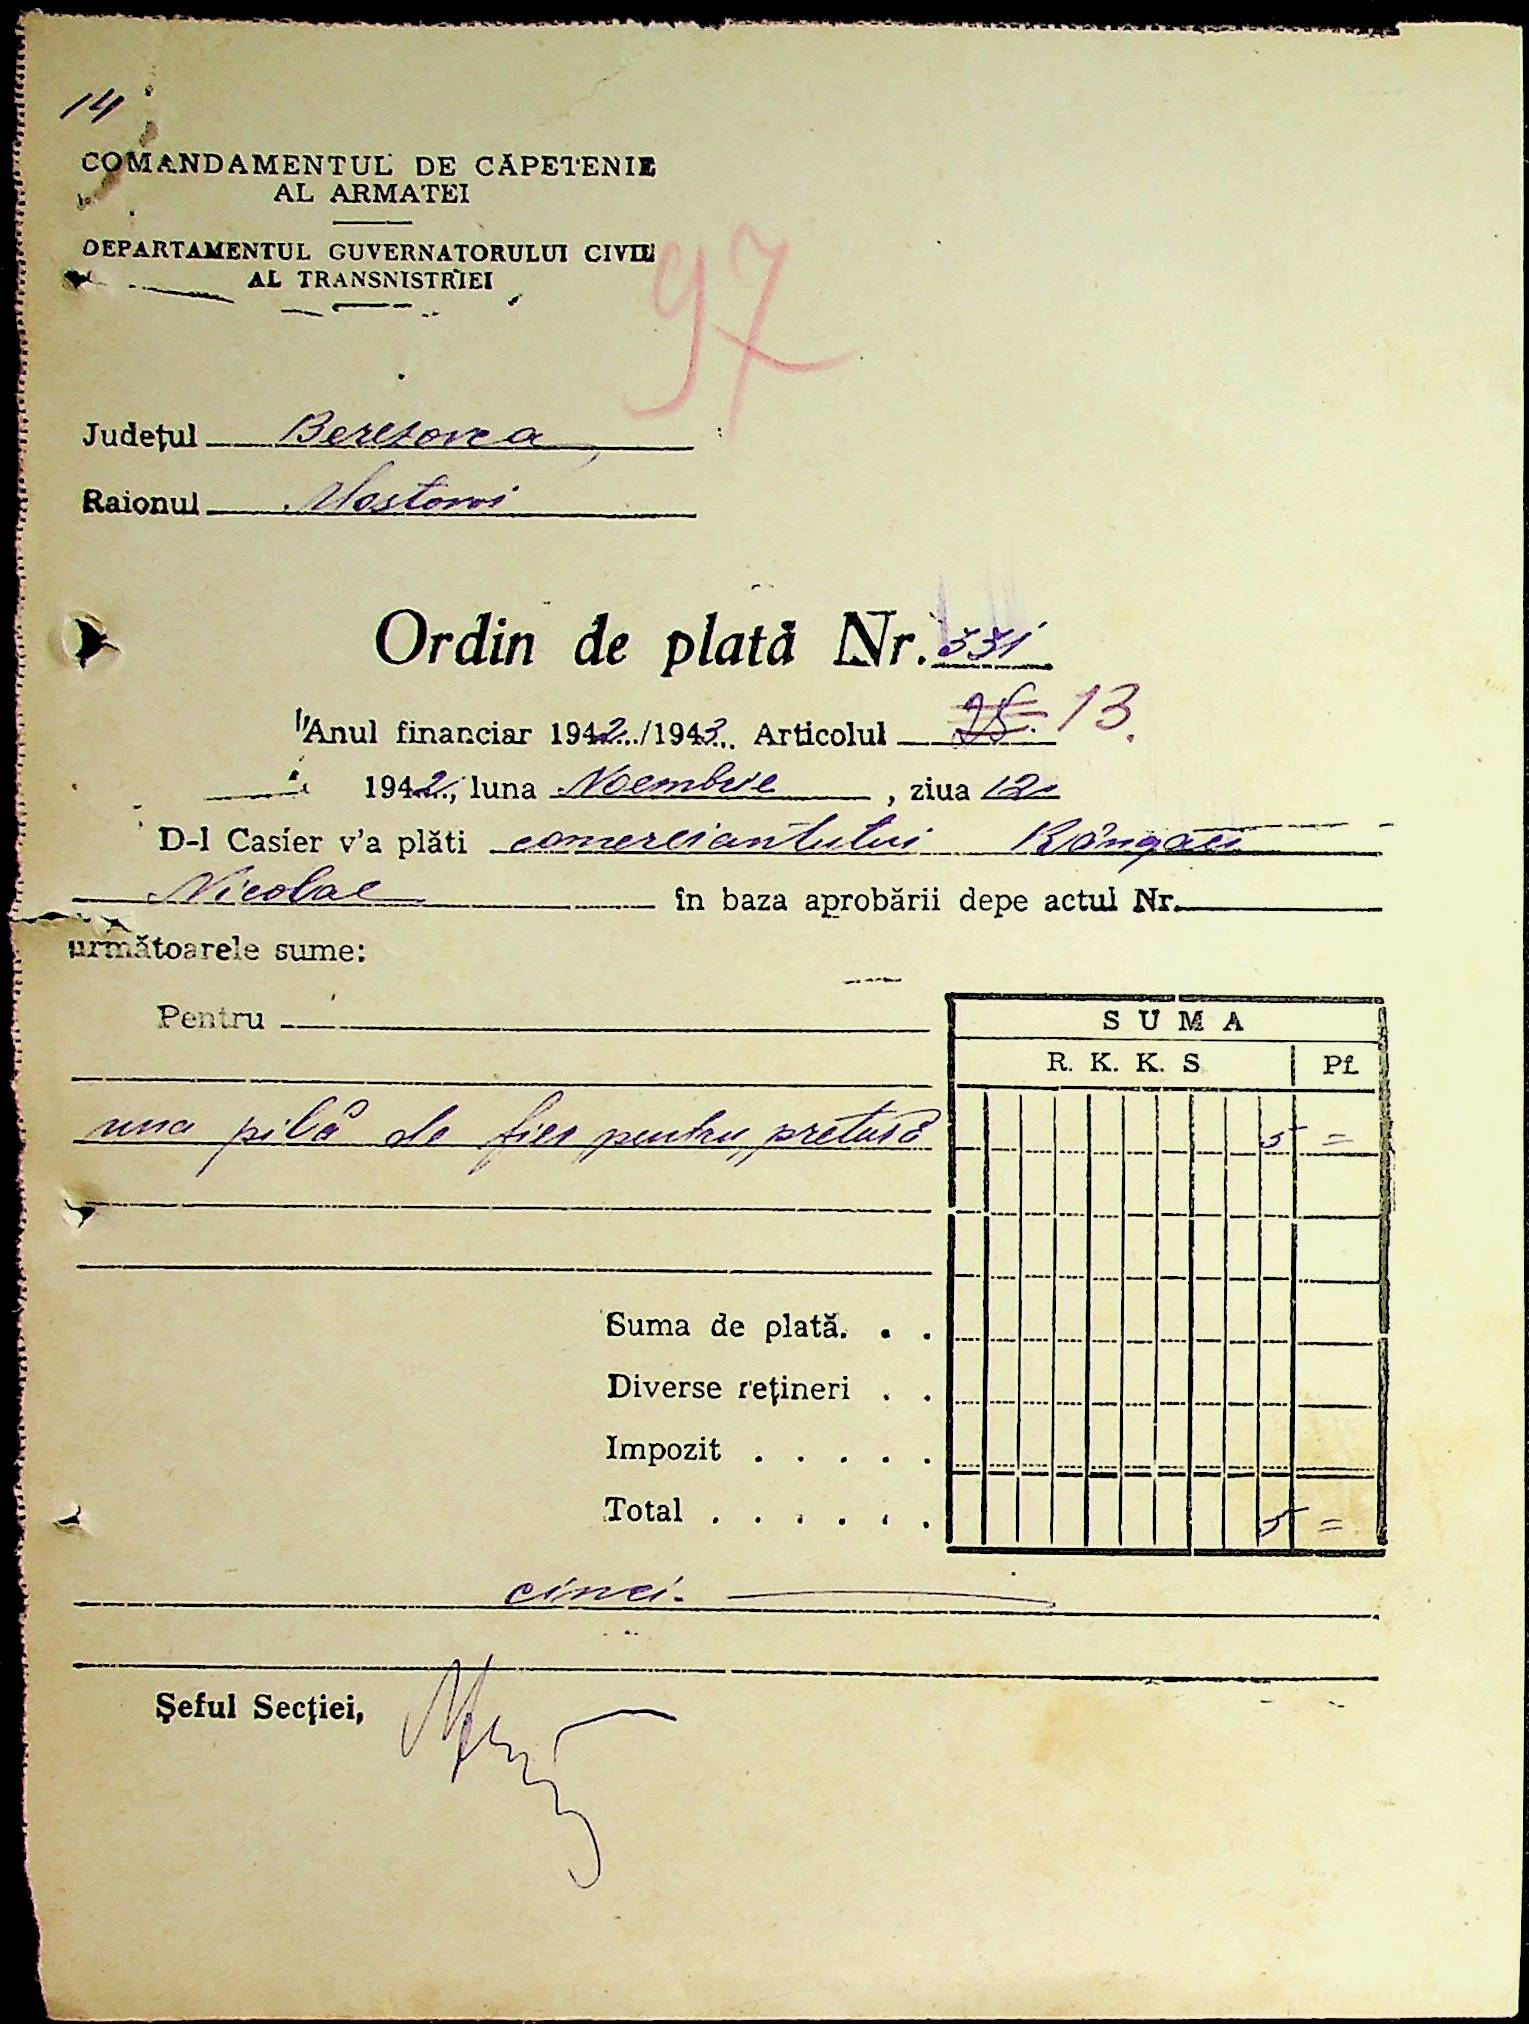 14
COMANDAMENTUL DE CĂPETENIE
AL ARMATEI
DEPARTAMENTUL GUVERNATORULUI CIVIL
AL TRANSNISTRIEI
97
Județul Beresovca
Raionul Mostovoi
Ordin de plată Nr. 331
Anul financiar 1942/1943 Articolul 13.
1942, luna Noembrie, ziua 12
D-l Casier v'a plăti comerciantului
Nicolae în baza aprobării depe actul Nr.
următoarele sume:
Pentru
SUMA
R. K. K. S Pf.
una pilă de fier pentru pretură 5 =
Suma de plată. . .
Diverse rețineri . .
Impozit . . . . .
Total . . . . . . 5 =
cinci.
Șeful Secției,